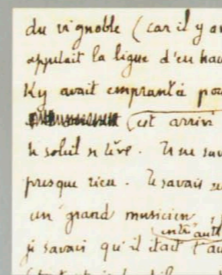 du vignoble (car il y av
appelait la ligue d'en hau
Ky avait emprunté pou
(est arrivé
le soleil se lève. Il ne sav
presque rien. Il savais
un grand musicien,
je savais qu'il était l'au